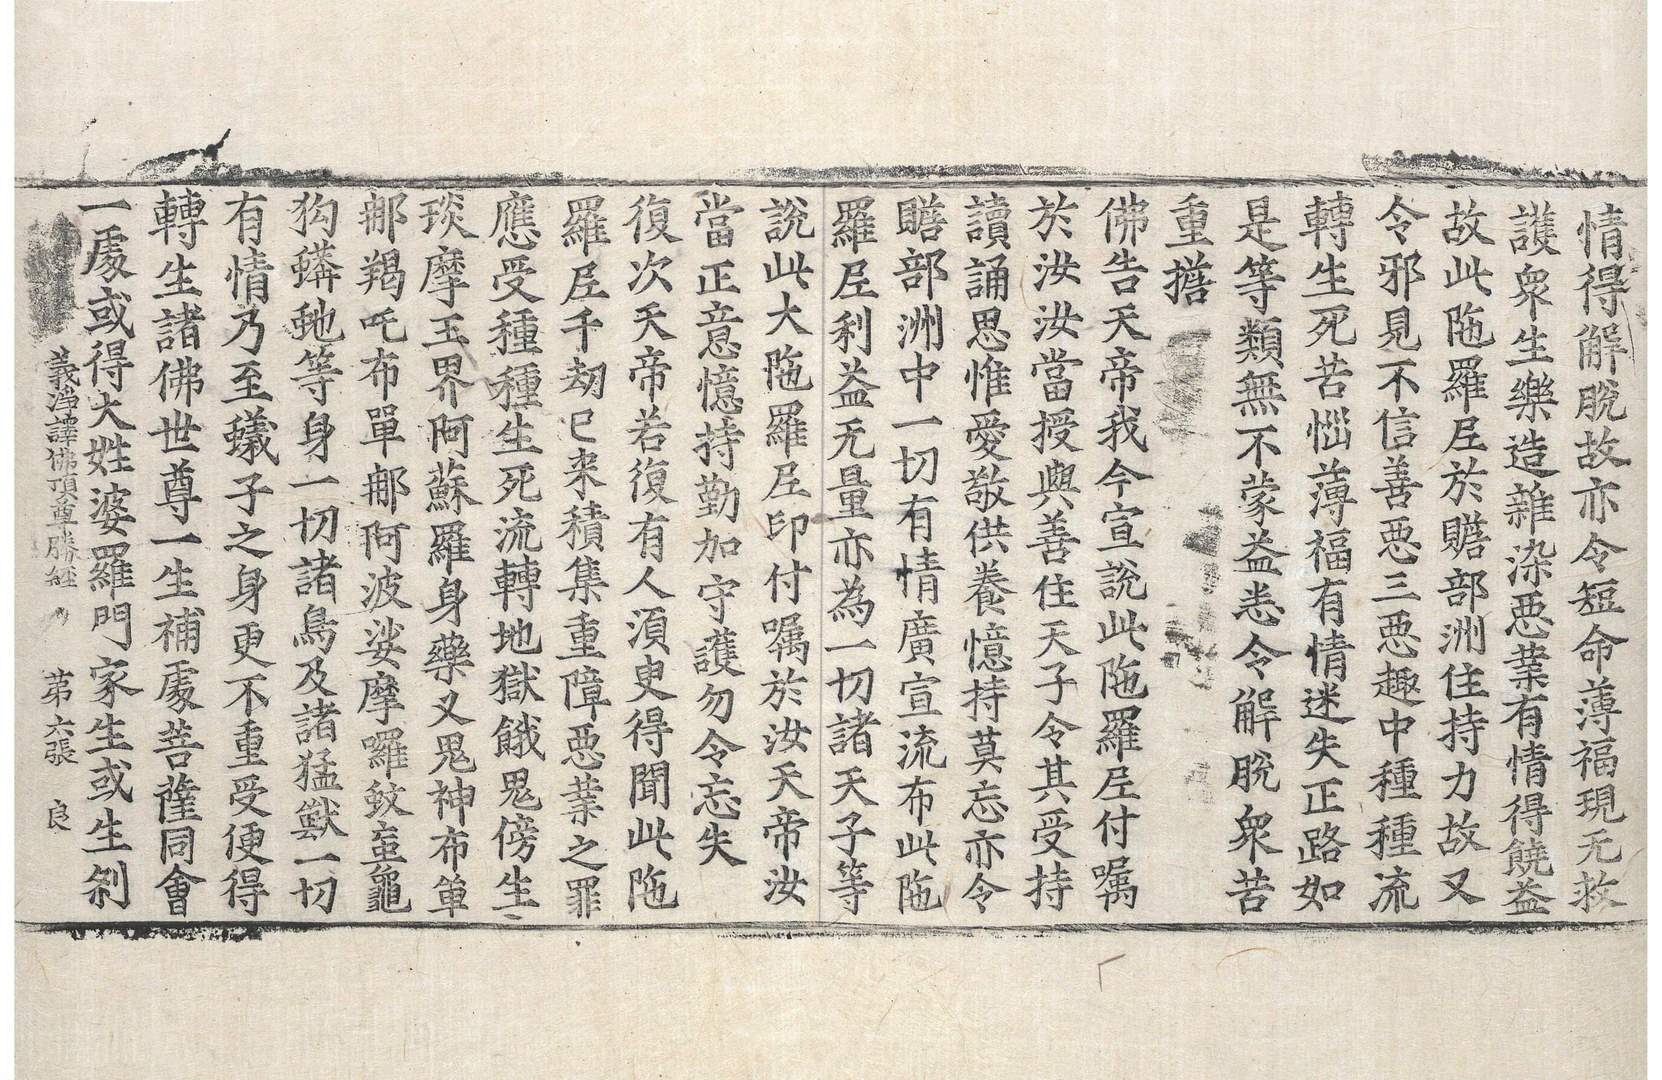 情得解脫故亦令短命薄福現无救
護衆生樂造雜染惡業有情得饒益
故此陁羅尼於贍部洲住持力故又
令邪見不信善惡三惡趣中種種流
轉生死苦惱薄福有情迷失正路如
是等類無不蒙益悉令解脫衆苦
重擔
佛告天帝我今宣說此陁羅尼付囑
於汝汝當授與善住天子令其受持
讀誦思惟愛敬供養憶持莫忘亦令
贍部洲中一切有情廣宣流布此陁
羅尼利益无量亦為一切諸天子等
說此大陁羅尼印付囑於汝天帝汝
當正意憶持勤加守護勿令忘失
復次天帝若復有人湏臾得聞此陁
羅尼千劫已来積集重障惡業之罪
應受種種生死流轉地獄餓鬼傍生
琰摩王界阿蘇羅身藥叉鬼神布單
那羯吒布單那阿波娑摩囉蚊䖟龜
狗蟒虵等身一切諸鳥及諸猛獸一切
有情乃至蟻子之身更不重受便得
轉生諸佛世尊一生補處菩薩同會
一處或得大姓婆羅門家生或生剎
義淨譯佛頂尊勝經 第六張 良